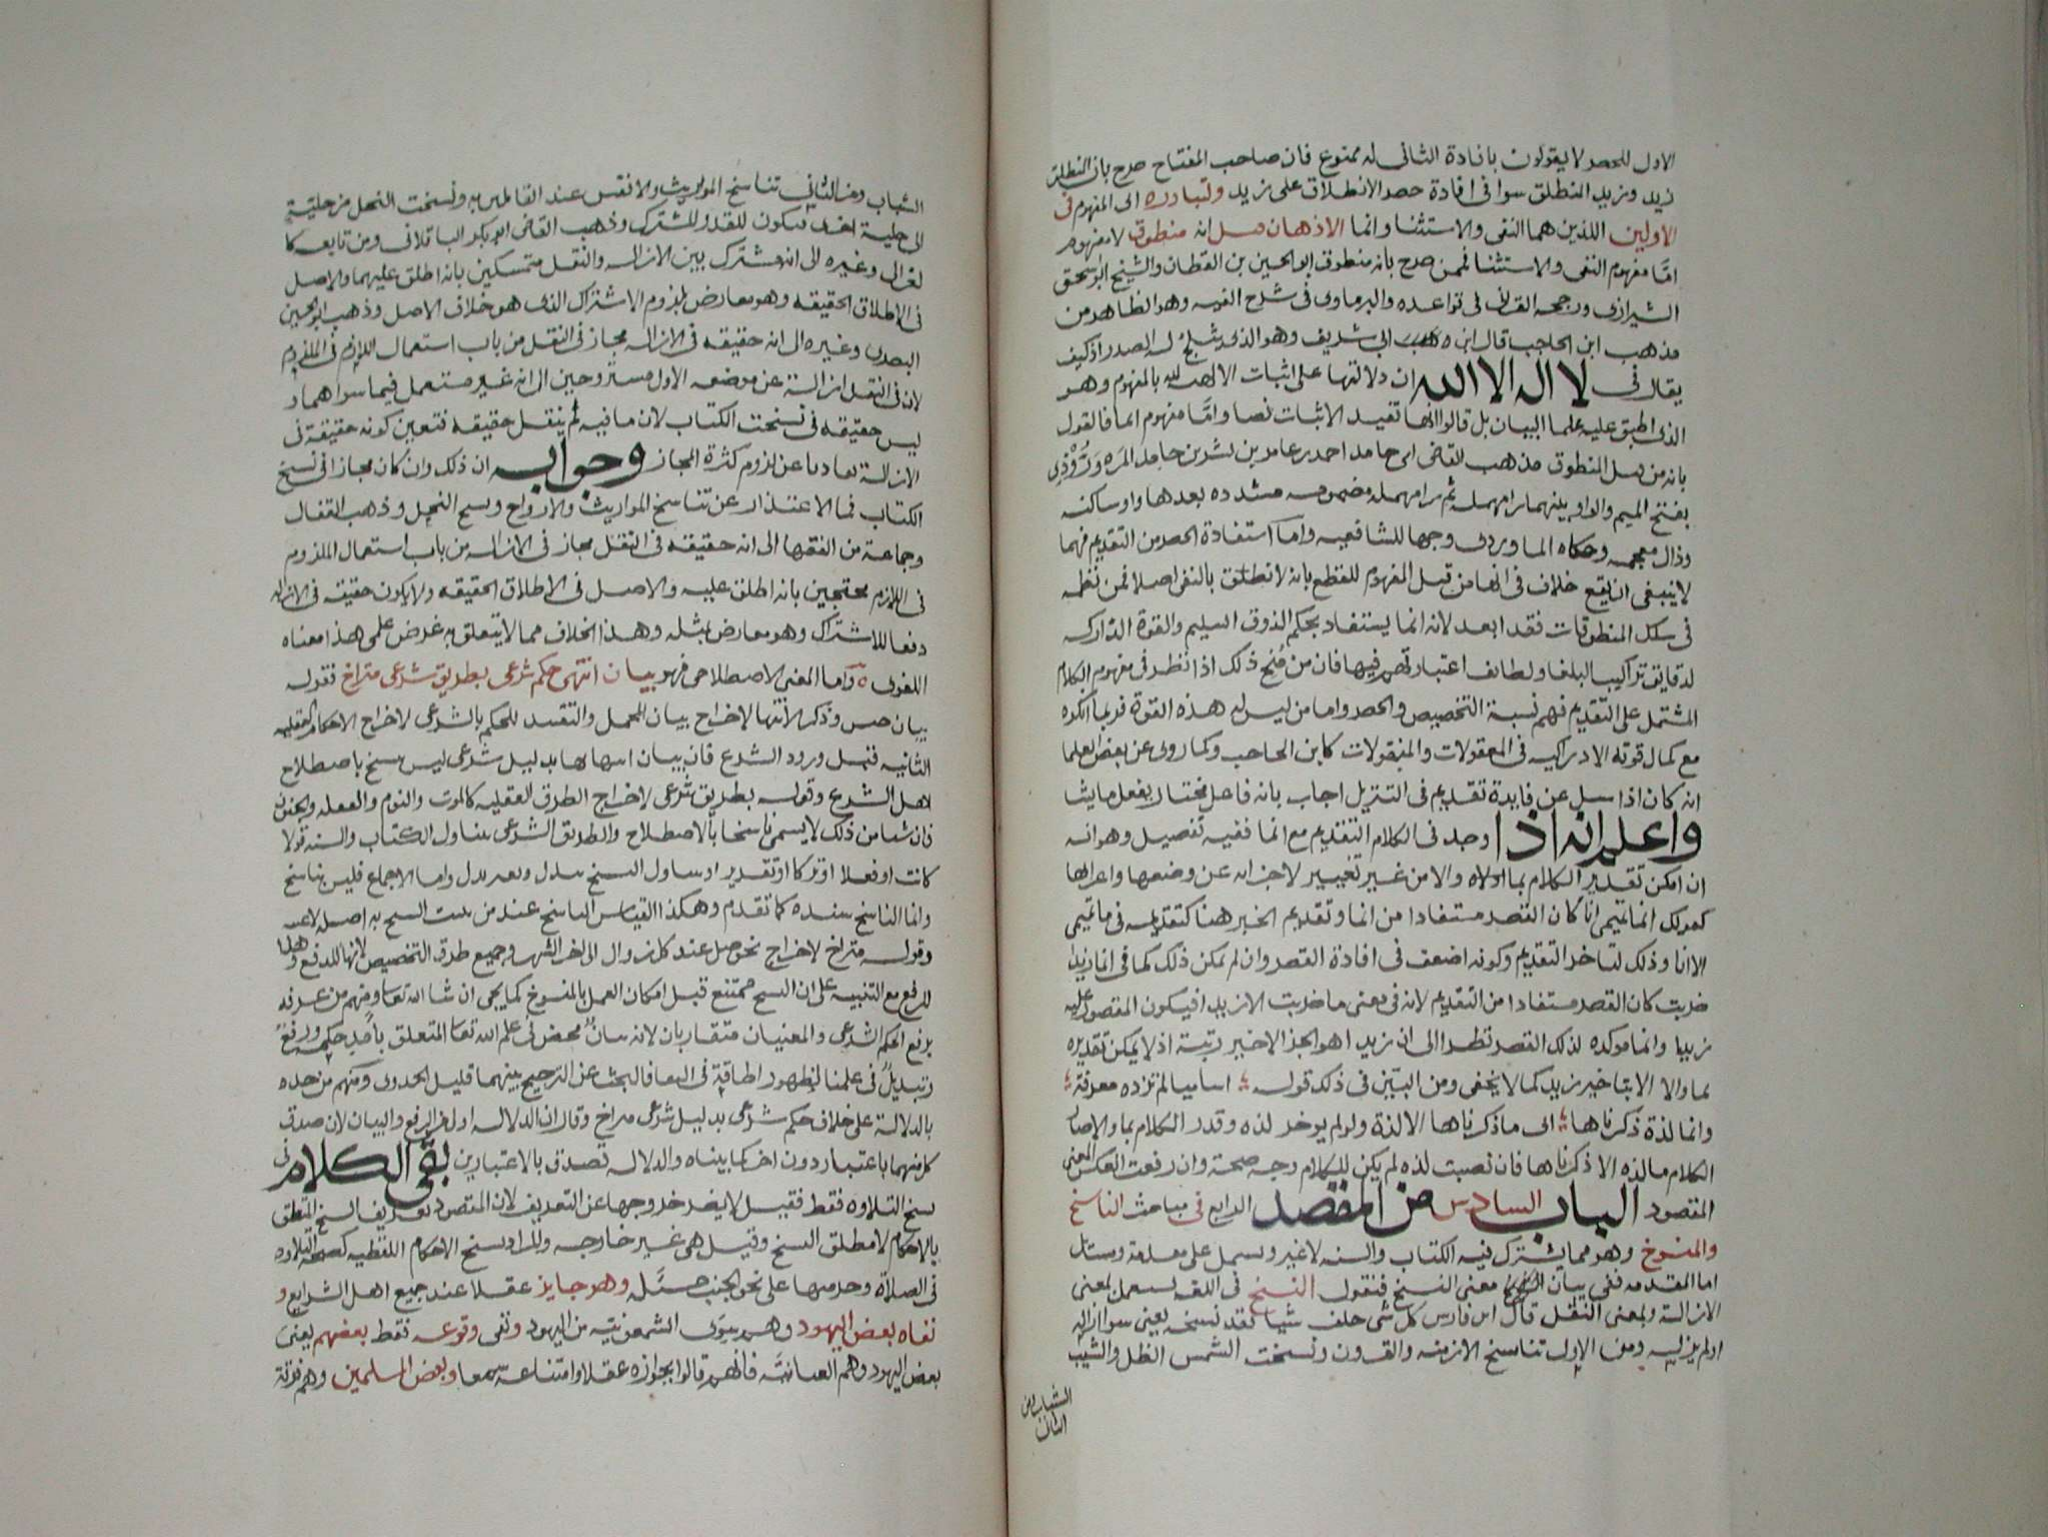 الاول للحصر لا يقولون بافادة الثانى له ممنوع فان صاحب المفتاح صرح بان المنطلق
زيد وزيد المنطلق سوا فى افادة حصر الانطلاق على زيد وتبادره الى المفهوم فى
الاولين اللذين هما النفى والاستثنا وانما الاذهان قيل انه منطوق لا مفهوم
امّا مفهوم النفى والاستثنا فممن صرح بانه منطوق ابو الحسين بن القطان والشيخ ابو سحق
الشيرازى ورجحه القرافى فى قواعده والبرماوى فى شرح الفيه وهو الظاهر من
مذهب ابن الحاجب قال ابن ابى شريف وهو الذى يثلج له الصدر اذ كيف
يقال فى لا اله الا الله ان دلالتها على اثبات الالهيه لله بالمفهوم وهو
الذى اطبق عليه علما البيان بل قالوا انها تفيد الاثبات نصا وامّا مفهوم انما فالقول
بانه من قبيل المنطوق مذهب للقاضى ابى حامد احمد بن عامر بن بشر بن حامد المروروذى
بفتح الميم والواو بينهما را مهمله ثم را مهمله مضمومه مشدده بعدها واو ساكنه
وذال معجمه وحكاه الماوردى وجها للشافعيه واما استفادة الحصر من التقديم فهما
لا ينبغى ان يقع خلاف فى انها من قبل المفهوم للقطع بانه لا نطق بالنفى اصلا فمن نظمه
فى سلك المنطوقات فقد ابعد لانه انما يستفاد بحكم الذوق السليم والقوة الدّاركه
لدقايق تراكيب البلغا ولطايف اعتباراتهم فيها فان من مُنح ذلك اذا نظر فى مفهوم الكلام
المشتمل على التّقديم فهم نسبة التخصيص والحصر واما من ليس له هذه القوة فربما انكره
مع كمال قوته الادراكيه فى المعقولات والمنقولات كابن الحاجب وكما روى عن بعض العلما
انه كان اذا سيل عن فايدة تقديم فى التنزيل اجاب بانه فاعل مختار يفعل ما يشا
واعلم انه اذا وجد فى الكلام التقديم مع انما ففيه تفصيل وهو انه
ان امكن تقدير الكلام بما اولاه والا من غير تغيير لاجزايه عن وضعها واعرابها
كقولك انما تميمى انا كان القصر مستفادا من انما وتقديم الخبر هنا كتقديمه فى ما تميمى
الا انا وذلك لتاخر التقديم وكونه اضعف فى افادة القصر وان لم يمكن ذلك كما فى انما زيدا
ضربت كان القصر مستفادا من التقديم لانه فى معنى ما ضربت الا زيدا فيكون المقصور عليه
زيدا وانما موكده لذلك القصر نظرا الى ان زيدا هو الجز الاخير رتبة اذ لا يمكن تقديره
بما والا الا بتاخير زيد كما لا يخفى ومن البيّن فى ذلك قوله اساميا لم تزده معرفة
وانما لذة ذكرناها اى ما ذكرناها الا لذة ولو لم يوخر لذه وقدر الكلام بما والا صار
الكلام ما لذه الا ذكرناها فان نصبت لذه لم يكن للكلام وجه صحة وان رفعت انعكس المعنى
المقصود الباب السادس من المقصد الرابع فى مباحث الناسخ
والمنسوخ وهو مما يشترك فيه الكتاب والسنه لا غير ويشتمل على مقدمة ومسايل
اما المقدمه ففى بيان معنى النسخ فنقول النسخ فى اللغه يستعمل بمعنى
الازالة وبمعنى النقل قال ابن فارس كل شى خلف شيا فقد نسخه يعنى سوا ازاله
او لم يزله ومن الاول تناسخ الازمنه والقرون ونسخت الشمس الظل والشيب
الشباب ومن
الثانى
الشباب ومن الثانى تناسخ المواريث والانفس عند القايلين به ونسخت النحل من خلية
الى خلية اخرى فيكون للقدر المشترك وذهب القاضى ابو بكر الباقلانى ومن تابعه كا
لغزالى وغيره الى انه مشترك بين الازاله والنقل متمسكين بانه اطلق عليهما والاصل
فى الاطلاق الحقيقه وهو معارض بلزوم الاشتراك الذى هو خلاف الاصل وذهب ابو الحسين
البصرى وغيره الى انه حقيقه فى الازاله مجاز فى النقل من باب استعمال اللازم فى الملزوم
لان فى النقل ازالة عن موضعه الاول مستروحين الى انه غير مستعمل فيما سواهما و
ليس حقيقه فى نسخت الكتاب لان ما فيه لم ينقل حقيقه فتعين كونه حقيقة فى
الازالة تفاديا عن لزوم كثرة المجاز وجوابه ان ذلك وان كان مجازا فى نسخ
الكتاب فما الاعتذار عن تناسخ المواريث والارواح ونسخ النحل وذهب القفال
وجماعة من الفقها الى انه حقيقه فى النقل مجاز فى الازاله من باب استعمال الملزوم
فى اللازم محتجين بانه اطلق عليه والاصل فى الاطلاق الحقيقه ولا يكون حقيقه فى الازاله
دفعا للاشتراك وهو معارض بمثله وهذا الخلاف مما لا يتعلق به غرض علمى هذا معناه
اللغوى وامّا المعنى الاصطلاحى فهو بيان انتهى حكم شرعى بطريق شرعى متراخ فقوله
بيان جنس وذكر الانتها لاخراج بيان المجمل والتقييد للحكم بالشرعى لاخراج الاحكام العقليه
الثابته قبل ورود الشرع فان بيان انتهايها بدليل شرعى ليس بنسخ باصطلاح
اهل الشرع وقوله بطريق شرعى لاخراج الطرق العقليه كالموت والنوم والغفله والجنون
فان شيا من ذلك لا يسمى ناسخا بالاصطلاح والطريق الشرعى يتناول الكتاب والسنه قولا
كانت او فعلا او تركا او تقديرا وتناول النسخ ببدل وبغير بدل واما الاجماع فليس بناسخ
وانما الناسخ سنده كما تقدم وهكذا القياس الناسخ عند من يثبت النسخ به اصله لا عينه
وقوله متراخ لاخراج نحو صل عند كل زوال الى اخر الشهر وجميع طرق التخصيص لانها للدفع وهذا
للرفع مع التنبيه على ان النسخ ممتنع قبل امكان العمل بالمنسوخ كما يجى ان شا الله تعالى ومنهم من عرفه
برفع الحكم الشرعى والمعنيان متقاربان لانه بيان محض فى علم الله تعالى المتعلق بامد حكمه ورفع
وتبديل فى علمنا لظهور اطلاقه فى البقا فالبحث عن الترجيح بينهما قليل الجدوى ومنهم من حده
بالدلالة على خلاف حكم شرعى بدليل شرعى متراخ وقال ان الدلاله اولى من الرفع والبيان لان صدق
كل منهما باعتبار دون اخر كما بيناه والدلاله تصدق بالاعتبارين بقى الكلام فى
نسخ التلاوه فقط فقيل لا يضر خروجها عن التعريف لان المقصود تعريف النسخ المتعلق
بالاحكام لا مطلق النسخ وقيل هى غير خارجه والمراد نسخ الاحكام اللفظيه كصحة التلاوه
فى الصلاة وحرمتها على نحو الجنب مسئله وهو جايز عقلا عند جميع اهل الشرايع و
نفاه بعض اليهود وهم سوى الشمعونيه من اليهود ونفى وقوعه فقط بعضهم يعنى
بعض اليهود وهم العنانيه فانهم قالوا بجوازه عقلا وامتناعه سمعا وبعض المسلمين وهم فرقة